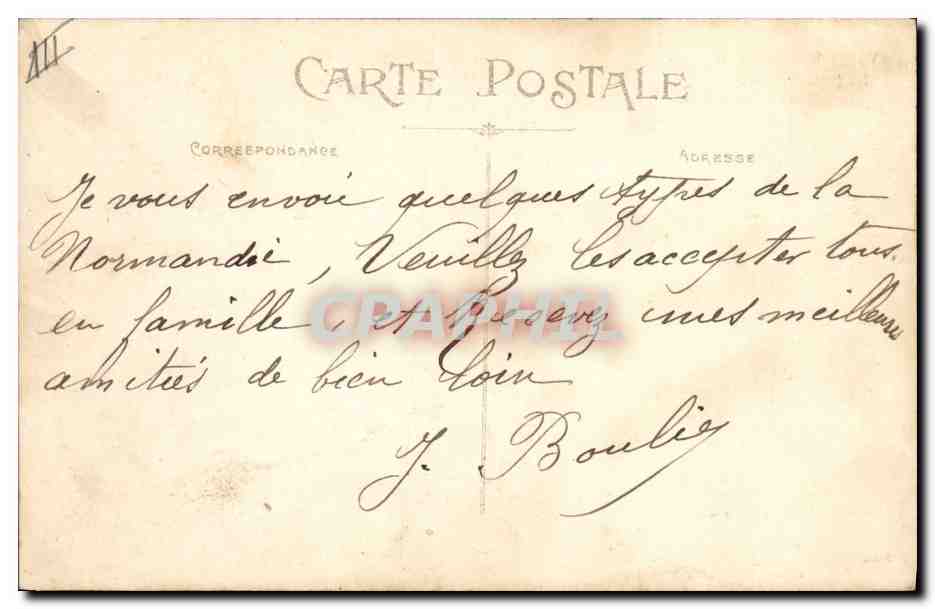 III
CARTE POSTALE
CORRESPONDANCE
ADRESSE
Je vous envoie quelques types de la
Normandie, Veuillez les accepter tous
en famille, et Resevez mes meilleures
amitiés de bien loin
J. Boulie
CPARHIL